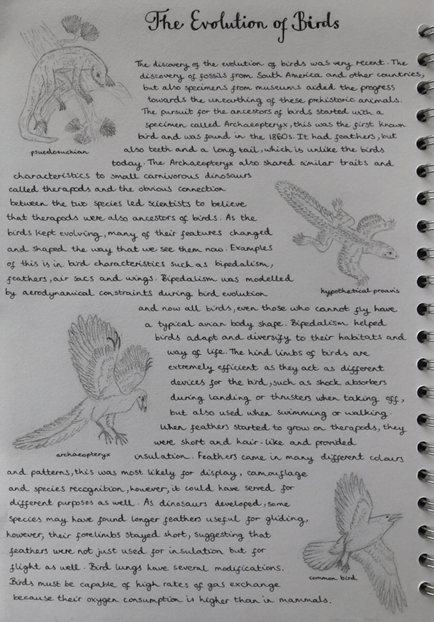 The Evolution of Birds
The discovery of the evolution of birds was very recent. The
discovery of fossils from South America and other countries,
but also specimens from museums aided the progress
towards the unearthing of these prehistoric animals.
The pursuit for the ancestors of birds started with a
specimen called Archaeopteryx, this was the first known
bird and was found in the 1860s. It had feathers, but
also teeth and a long tail, which is unlike the birds
today. The Archaeopteryx also shared similar traits and
psuedosuchian
characteristics to small carnivorous dinosaurs
called therapods and the obvious connection
between the two species led scientists to believe
that therapods were also ancestors of birds. As the
birds kept evolving, many of their features changed
and shaped the way that we see them now. Examples
of this is in bird characteristics such as bipedalism,
feathers, air sacs and wings. Bipedalism was modelled
by aerodynamical constraints during bird evolution
hypothetical proavis
and now all birds, even those who cannot fly have
a typical avian body shape. Bipedalism helped
birds adapt and diversify to their habitats and
way of life. The hind limbs of birds are
extremely efficient as they act as different
devices for the bird, such as shock absorbers
during landing or thrusters when taking off,
but also used when swimming or walking.
When feathers started to grow on therapods, they
were short and hair-like and provided
insulation. Feathers came in many different colours
archaeopteryx
and patterns, this was most likely for display, camouflage
and species recognition, however, it could have served for
different purposes as well. As dinosaurs developed, some
species may have found longer feathers useful for gliding,
however, their forelimbs stayed short, suggesting that
feathers were not just used for insulation but for
flight as well. Bird lungs have several modifications.
Birds must be capable of high rates of gas exchange
because their oxygen consumption is higher than in mammals.
common bird